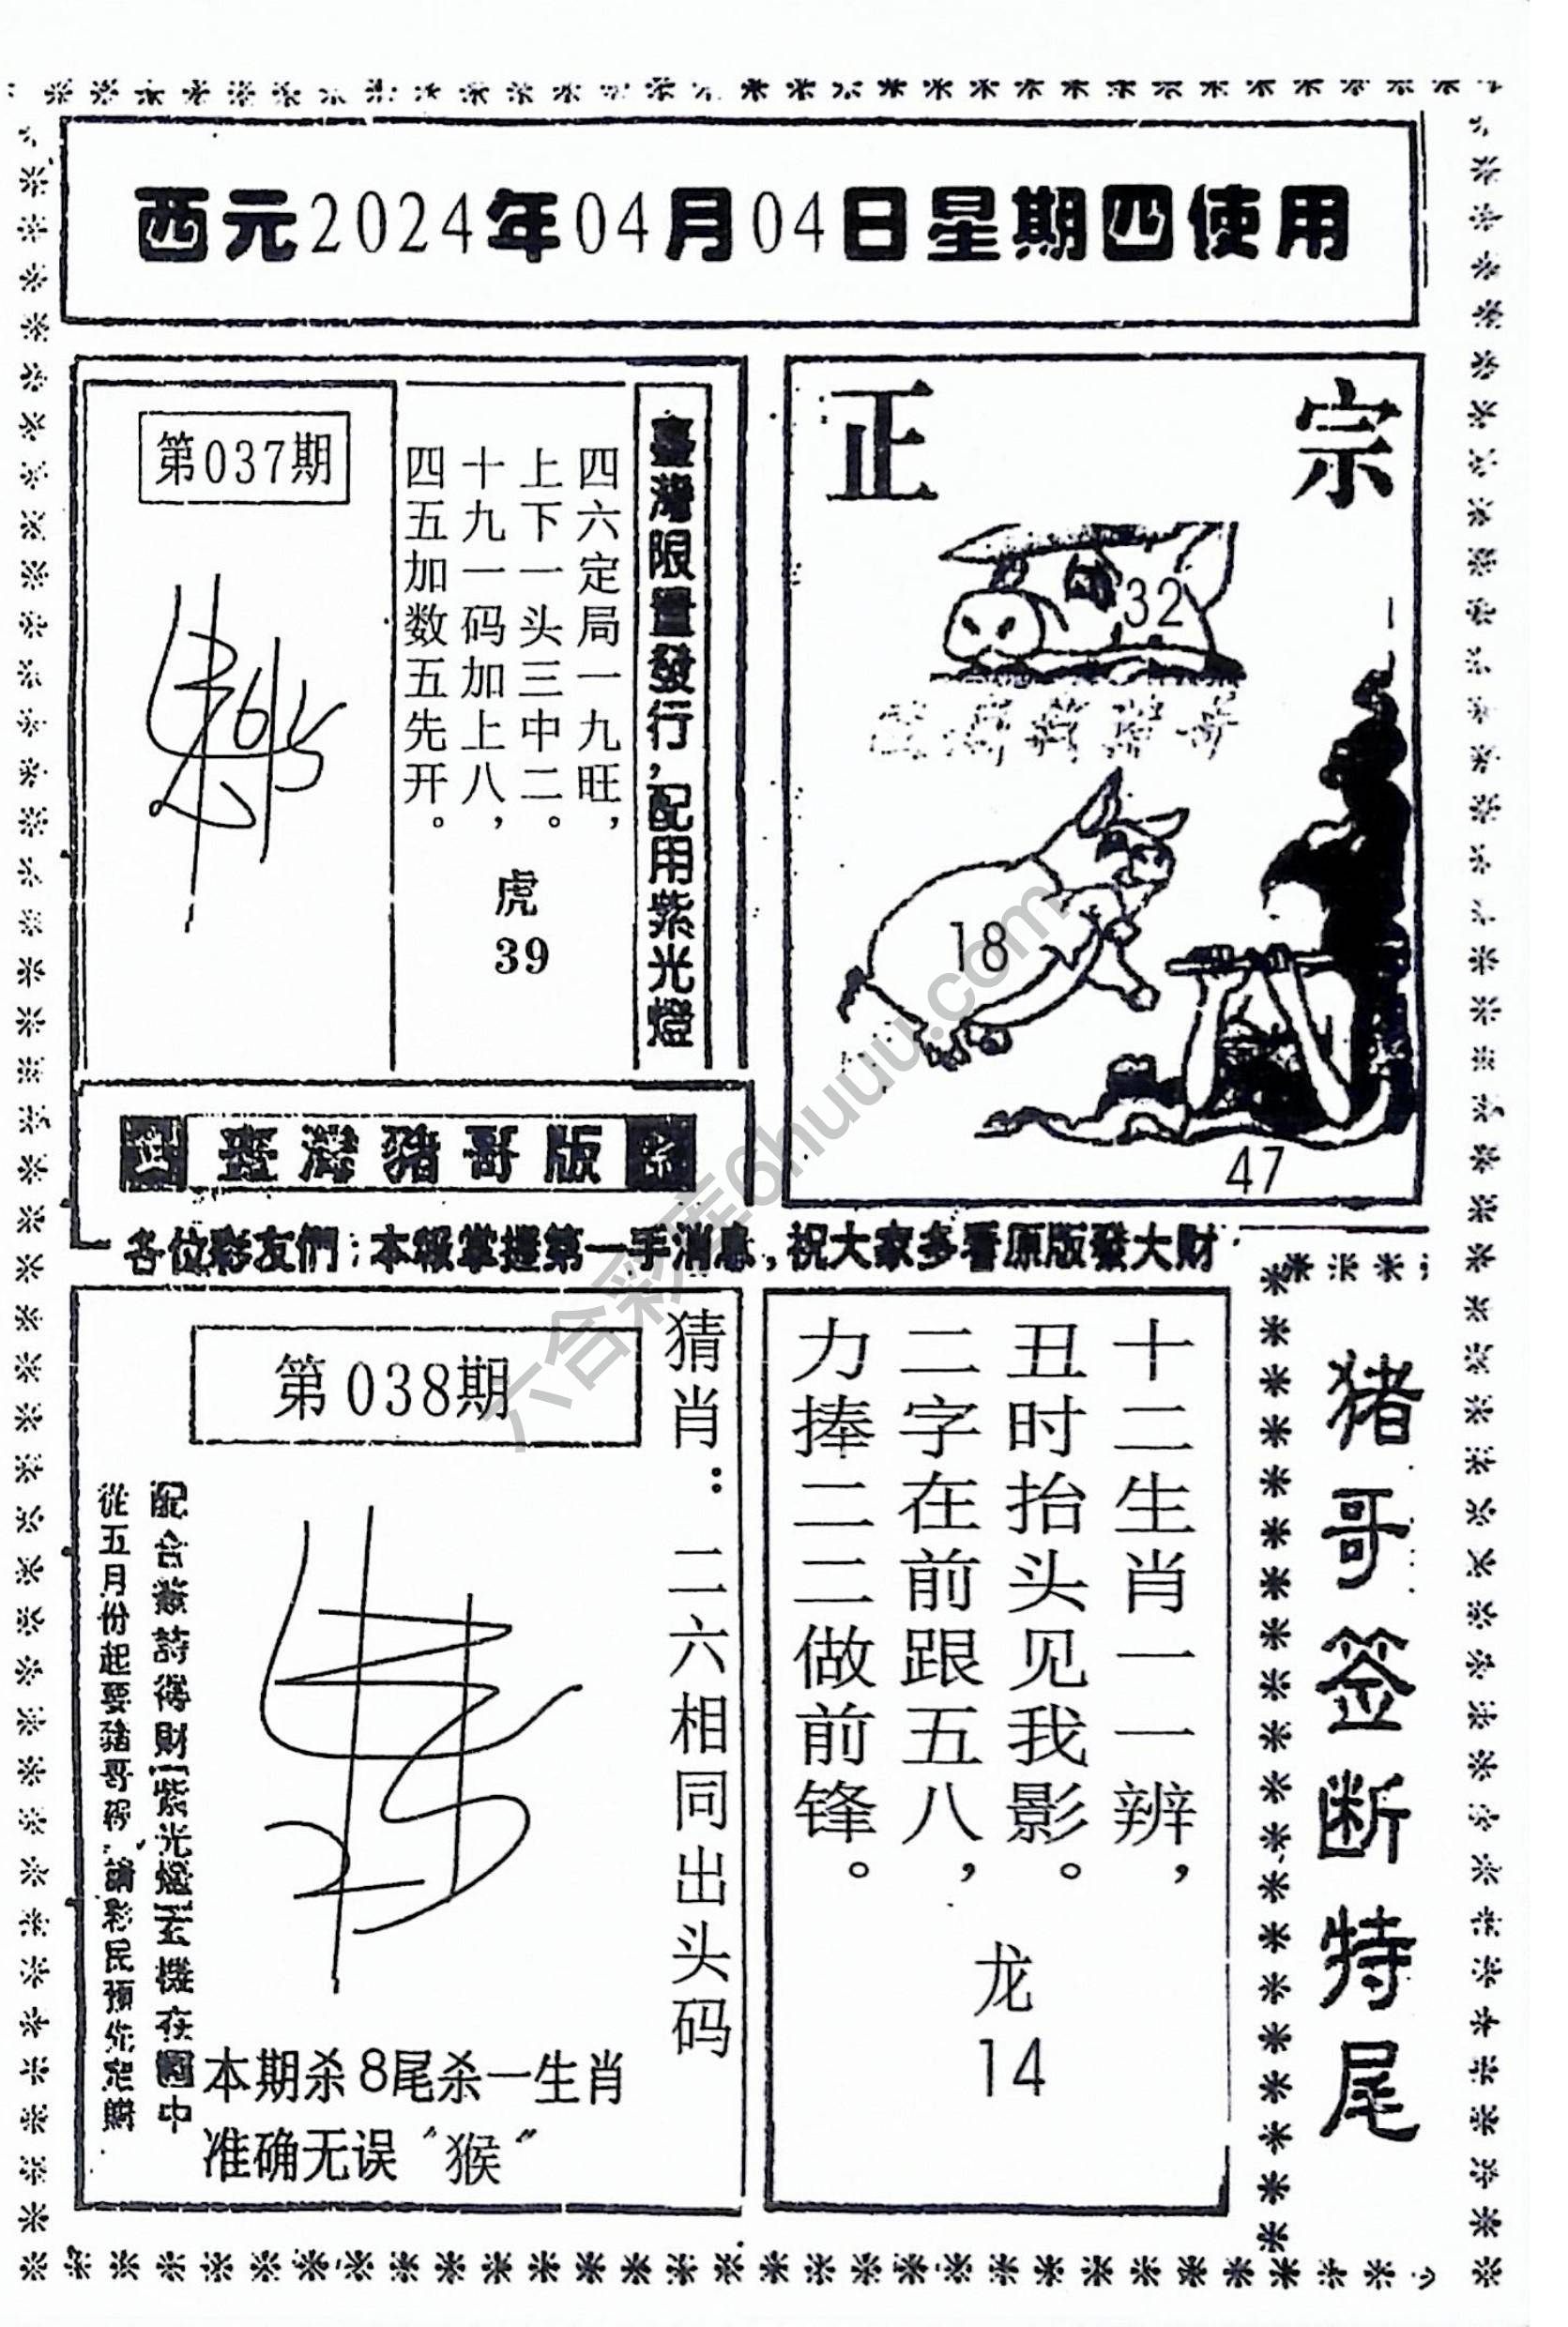 西元2024年04月04日星期四使用
第037期
四六定局一九旺，
上下一头三中二。
十九一码加上八，
四五加数五先开。
虎
39
臺灣限量發行，配用紫光燈
正宗
32
18
47
臺灣豬哥版
各位彩友們：本報掌握第一手消息，祝大家多看原版發大財
第038期
猜肖：二六相同出头码
從五月份起要豬哥報，請彩民預先定購
本期杀8尾杀一生肖
准确无误“猴”
十二生肖一一辨，
丑时抬头见我影。
二字在前跟五八，
力捧二二做前锋。
龙
14
猪哥签断特尾
六合彩库6huuu.com